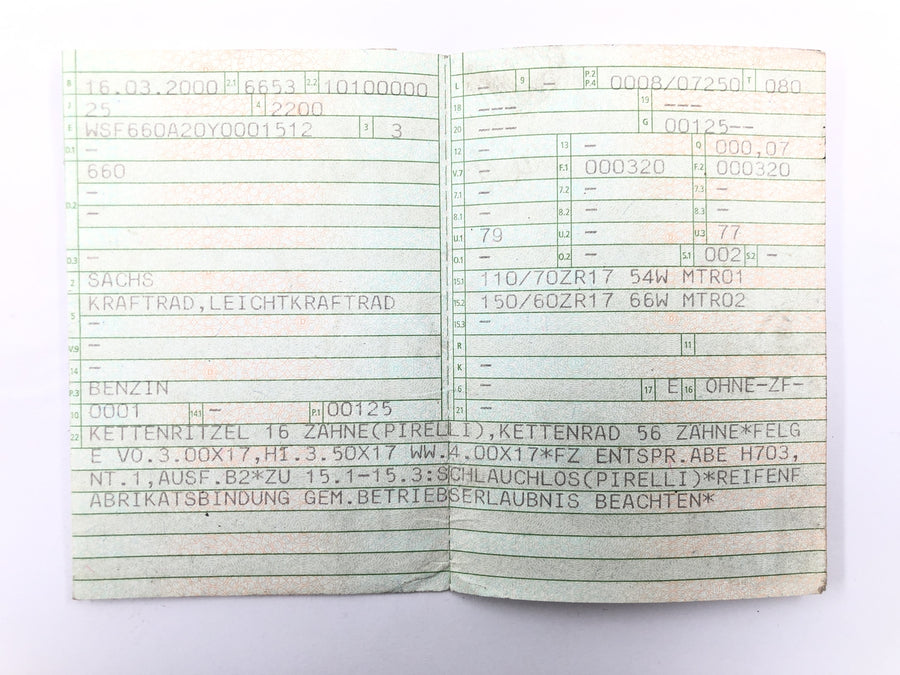 B 16.03.2000 2.1 6653 2.2 10100000
J 25 4 2200
E WSF660A20Y0001512 3 3
D.1 —
660
—
D.2 —
—
D.3 —
2 SACHS
5 KRAFTRAD,LEICHTKRAFTRAD
—
V.9 —
14 —
P.3 BENZIN
10 0001 14.1 — P.1 00125
L — 9 — P.2 P.4 0008/07250 T 080
18 ———— 19 ———
20 ———— G 00125--
12 — 13 — Q 000,07
V.7 — F.1 000320 F.2 000320
7.1 — 7.2 — 7.3 —
8.1 — 8.2 — 8.3 —
U.1 79 U.2 — U.3 77
O.1 — O.2 — S.1 002 S.2 —
15.1 110/70ZR17 54W MTR01
15.2 150/60ZR17 66W MTR02
15.3 —
R 11
K —
6 — 17 E 16 OHNE-ZF-
21 —
22 KETTENRITZEL 16 ZÄHNE(PIRELLI),KETTENRAD 56 ZÄHNE*FELG
E VO.3.00X17,HI.3.50X17 WW.4.00X17*FZ ENTSPR.ABE H703,
NT.1,AUSF.B2*ZU 15.1-15.3:SCHLAUCHLOS(PIRELLI)*REIFENF
ABRIKATSBINDUNG GEM.BETRIEBSERLAUBNIS BEACHTEN*